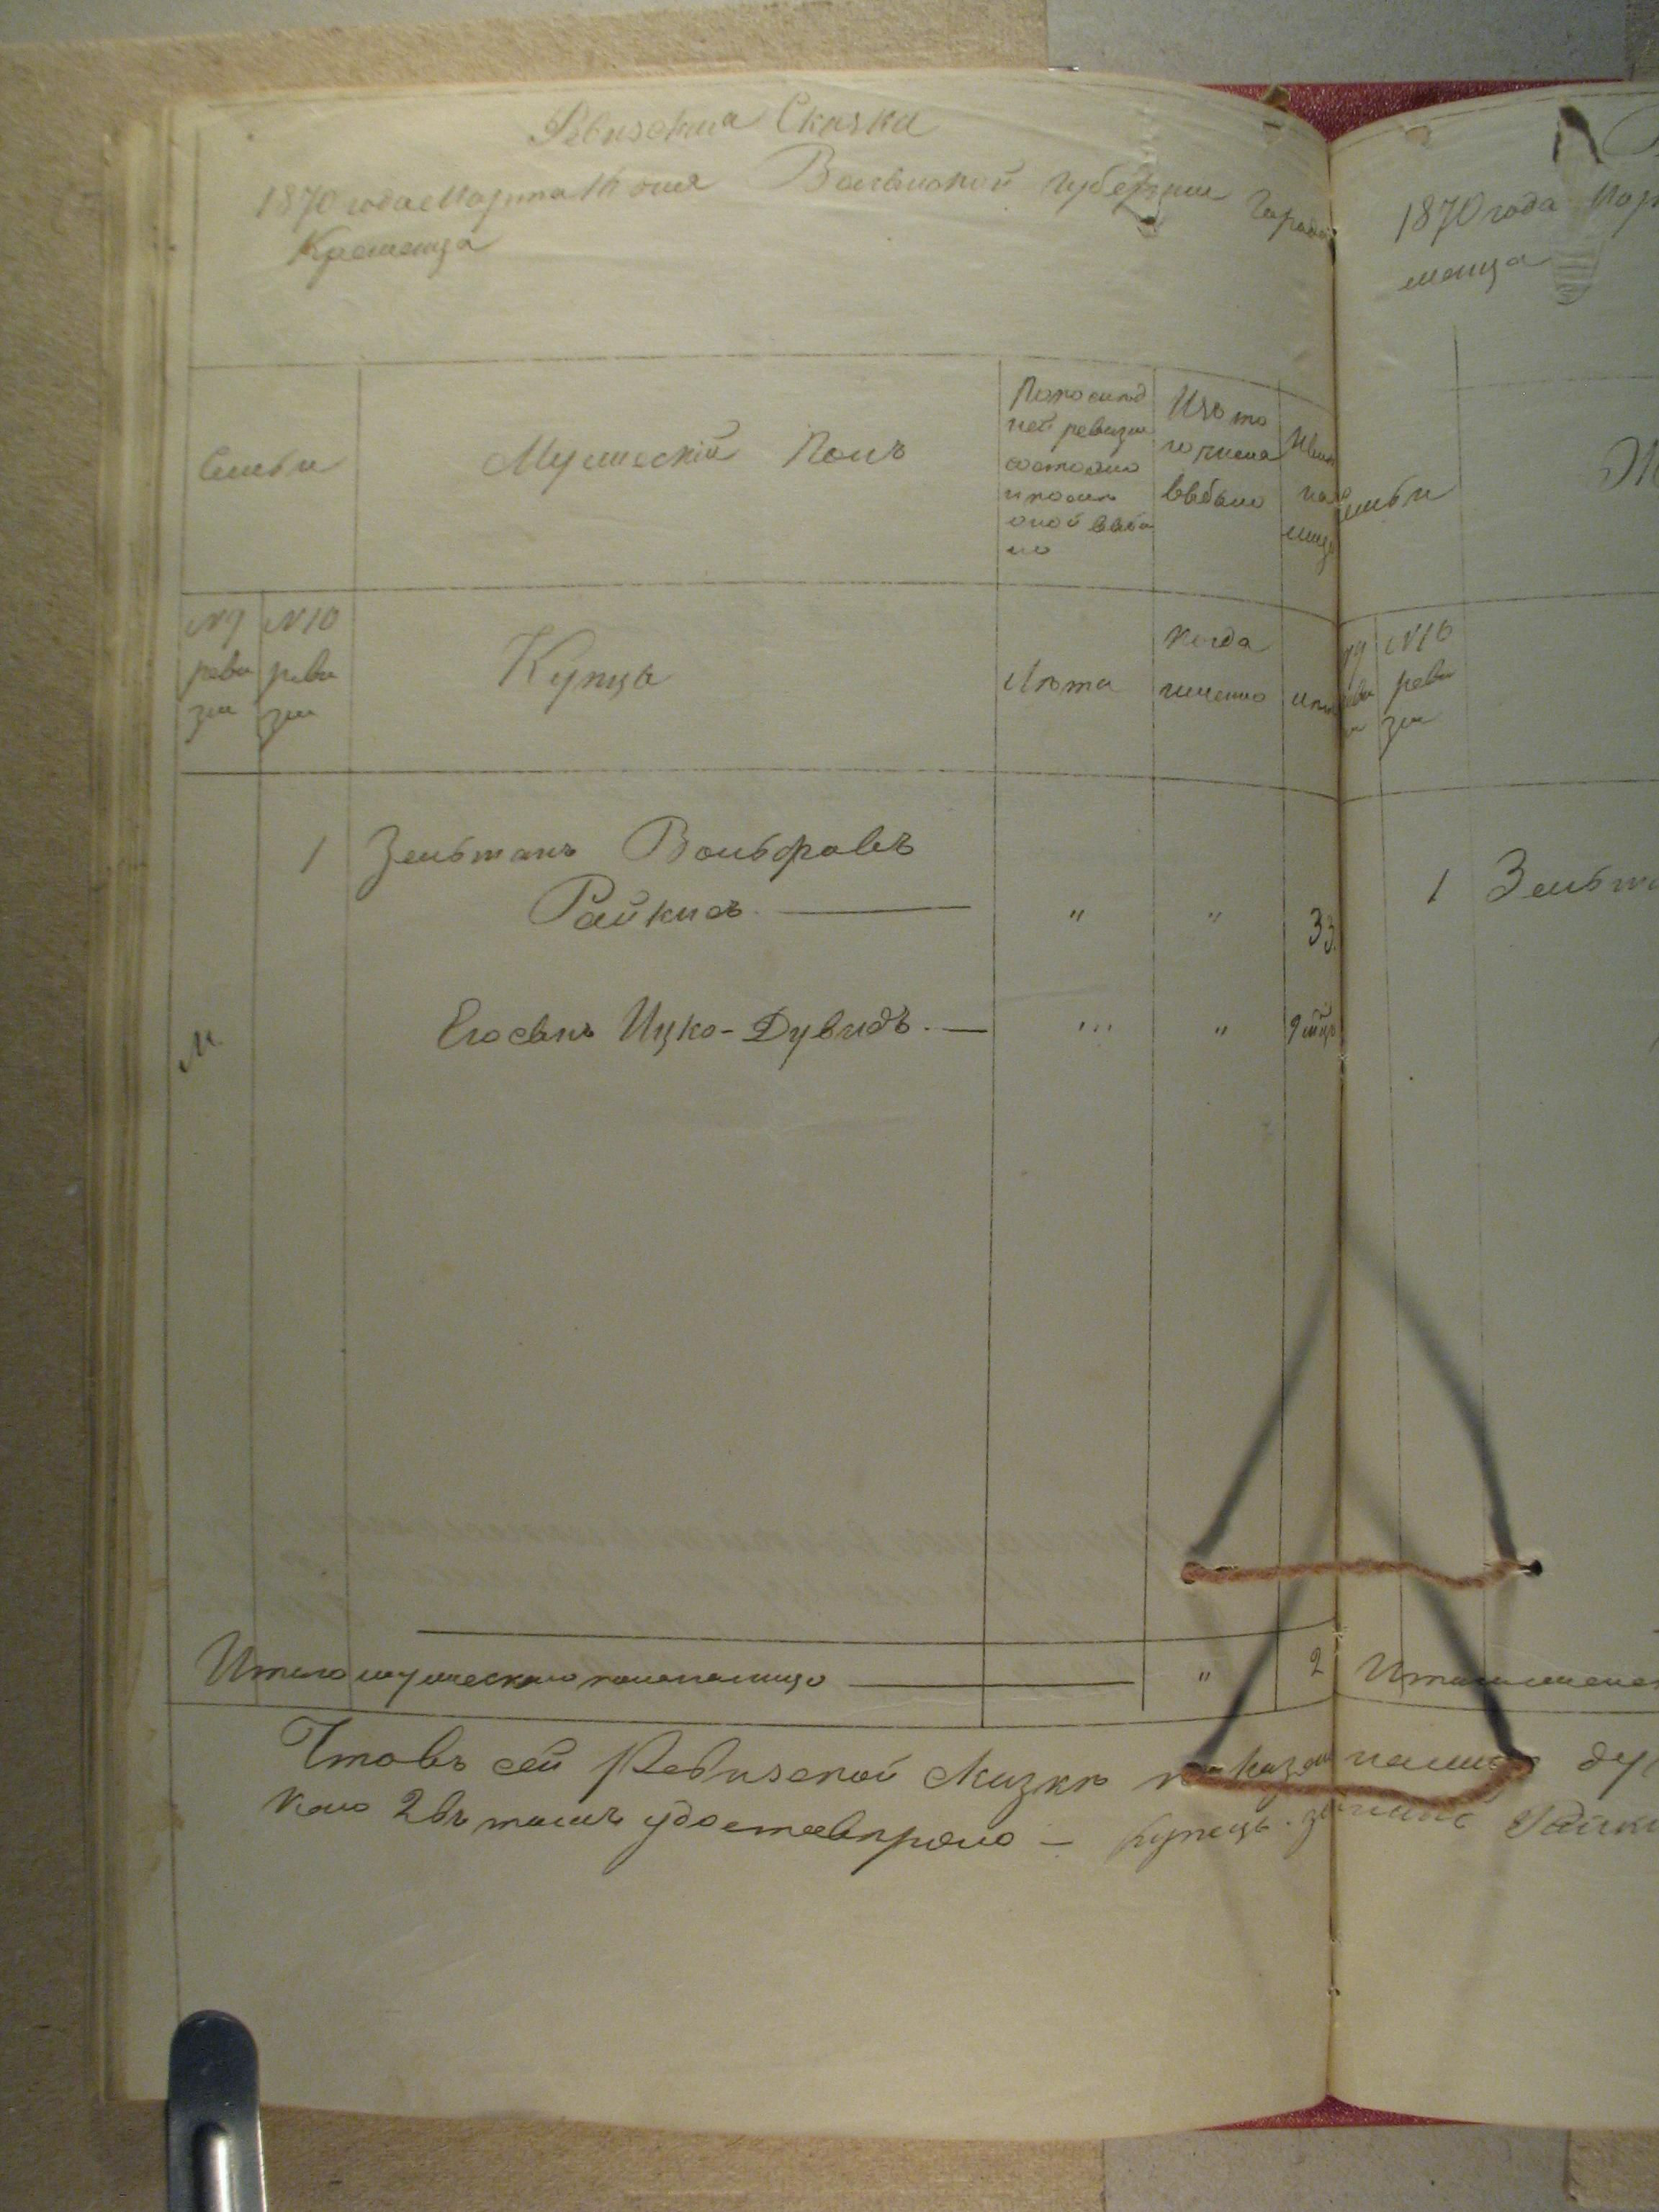 Ревизская Сказка
1870 года Марта 16 дня Волынской губернии Города
Кременца
Семьи
Мужескій Полъ
По послѣд
ней ревизіи
состояло
и после
оной прибы
ло
Изъ то
го числа
выбыло
Нынѣ
на
лицо
№ 9
реви
зіи
№ 10
реви
зіи
Купцы
Лѣта
Когда
именно
Лѣта
1 Зельманъ Вольфовъ
Райкисъ. — " " 33.
Его сынъ Ицко-Дувидъ. — " " 9 мцъ
М.
Итого мужескаго пола налицо — " 2
Что въ сей Ревизской Сказки показан налицо
каго 2 въ томъ удостоверяю — Купецъ
1870 года Мар
менца
семьи
№ 9
реви
зіи
№ 10
реви
зіи
1 Зельма
Итого женск